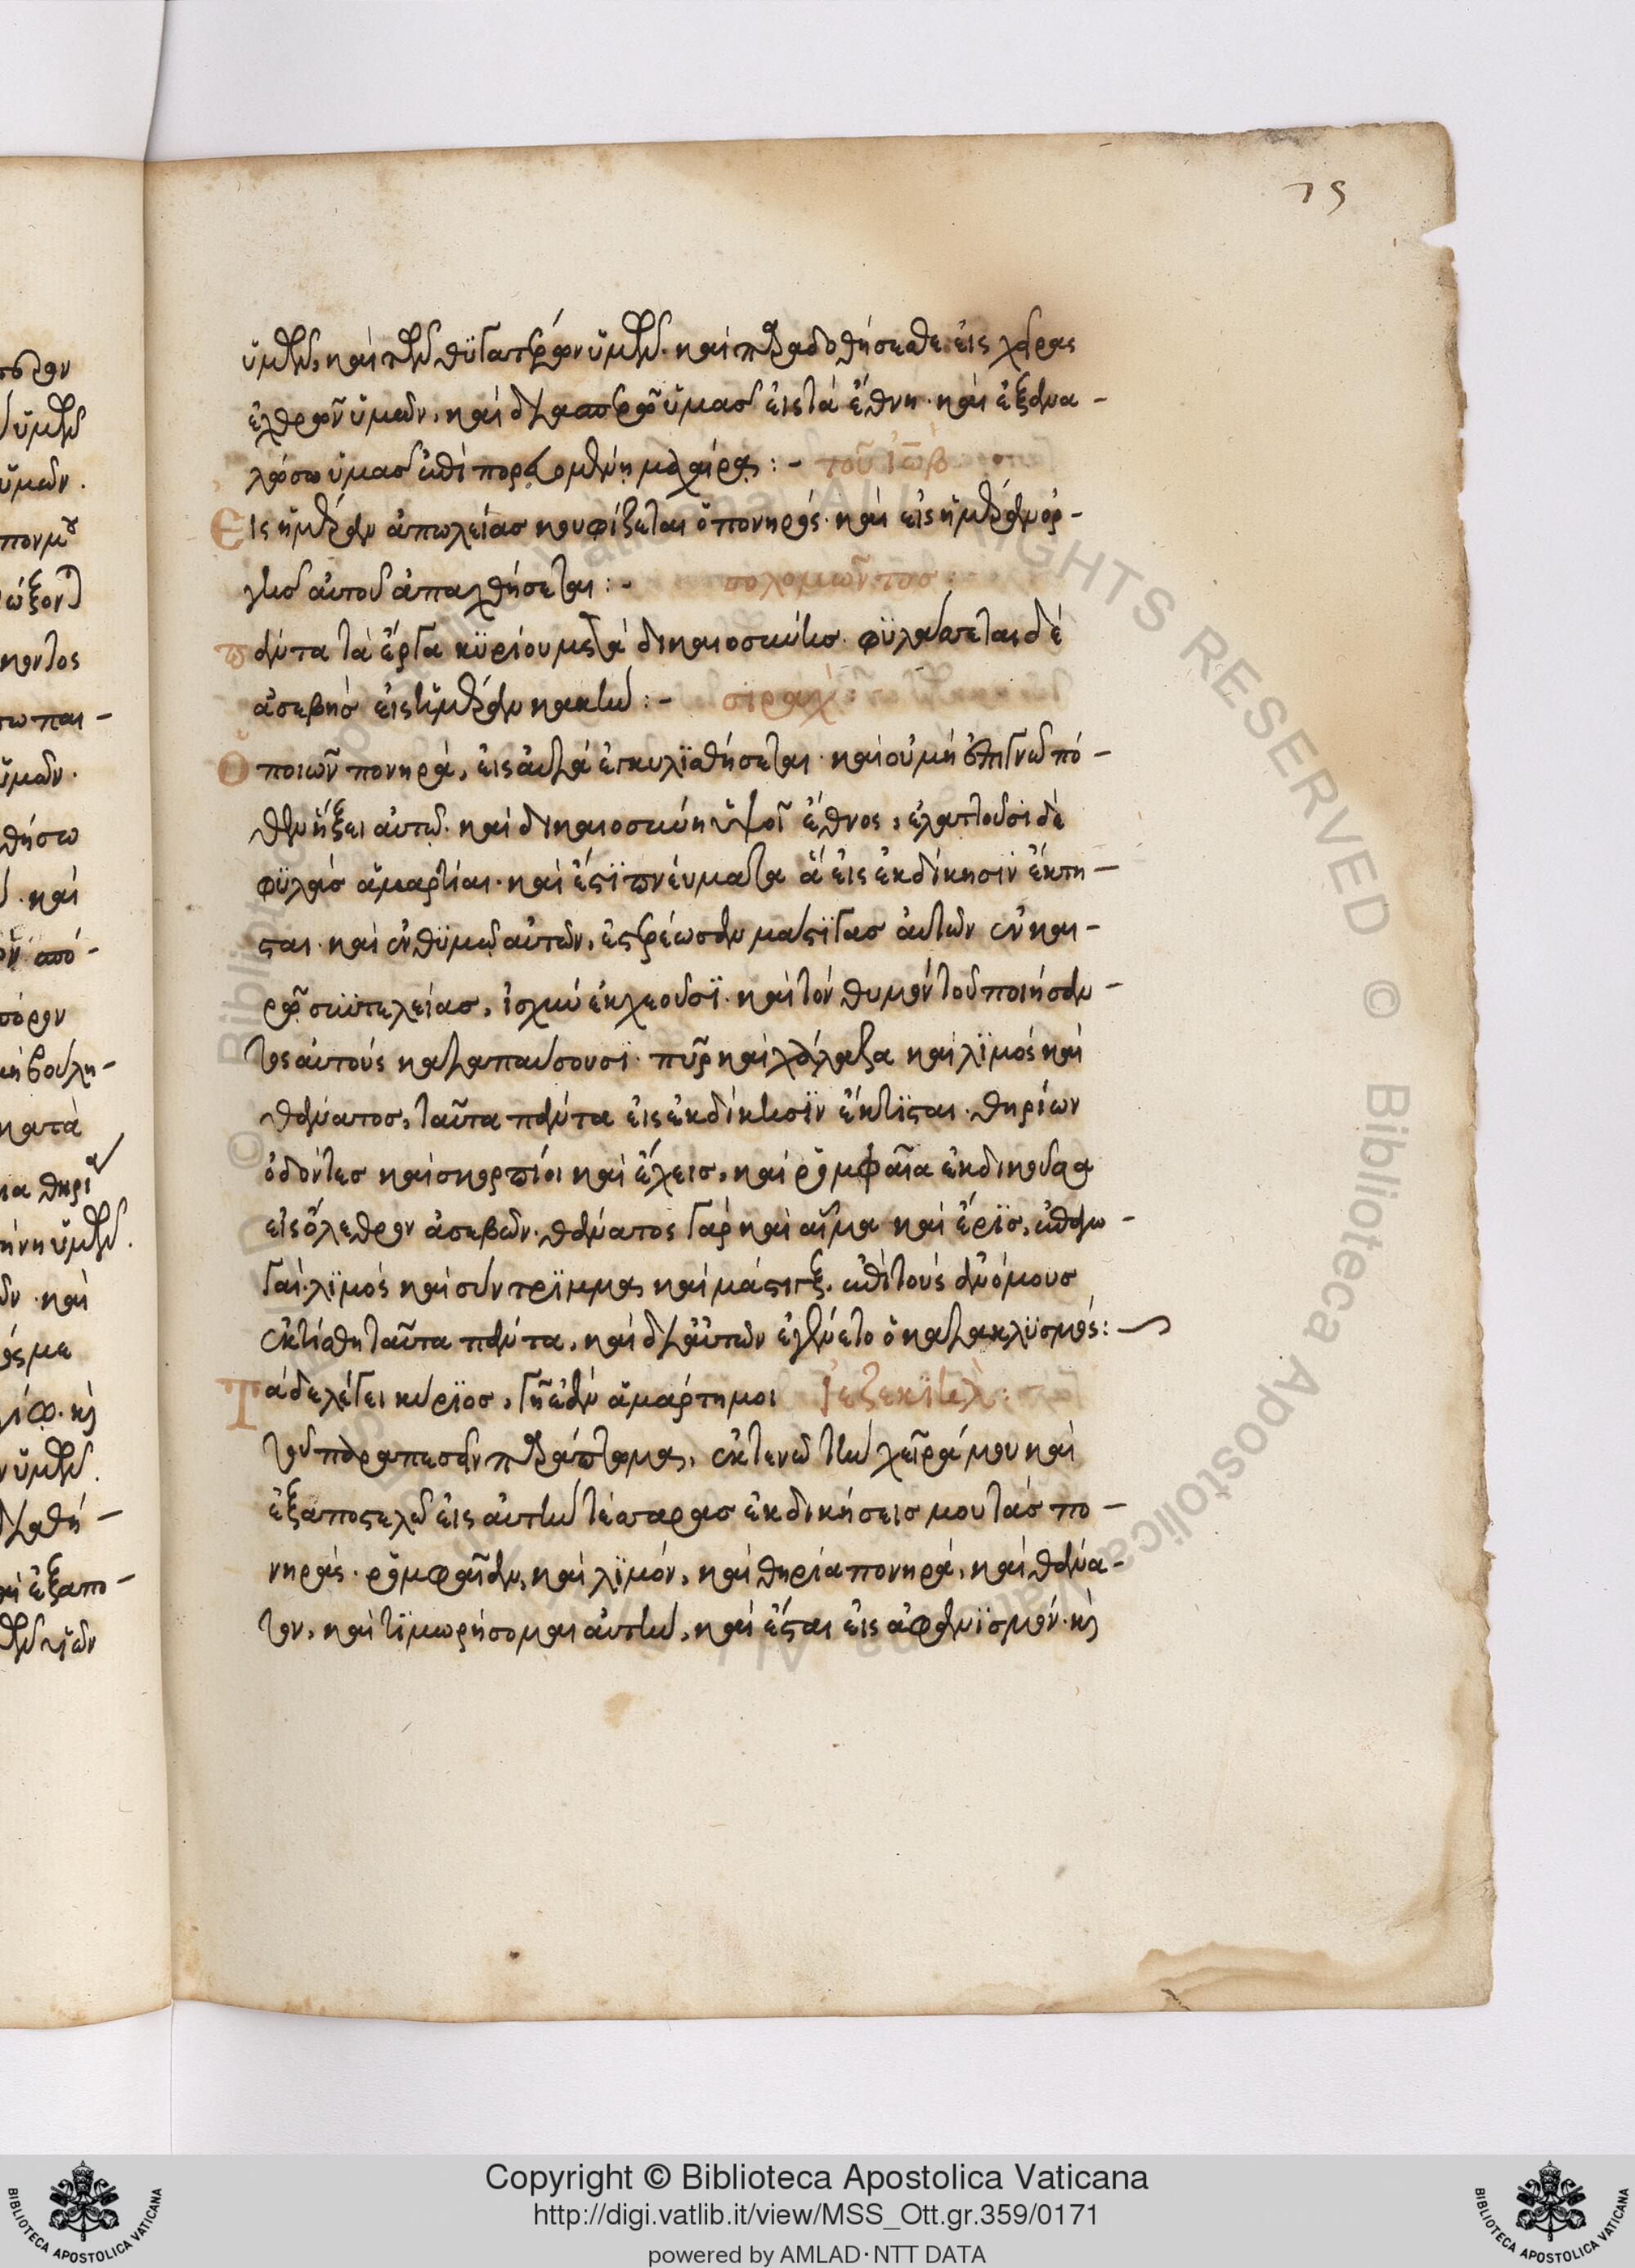 75
ὑμῶν, καὶ τῶν θυγατέρων ὑμῶν. καὶ παραδοθήσεσθε εἰς χεῖρας
ἐχθρῶν ὑμῶν, καὶ διασπερῶ ὑμᾶς εἰς τὰ ἔθνη. καὶ ἐξανα-
λώσω ὑμᾶς ἐπιπορευομένη μάχαιρα:- τοῦ ἰώβ
Εἰς ἡμέραν ἀπωλείας κουφίζεται ὁ πονηρός. καὶ εἰς ἡμέραν ὀρ-
γῆς αὐτοῦ ἀπαχθήσεται:- σολομῶντος:
πάντα τὰ ἔργα κυρίου μετὰ δικαιοσύνης. φυλάσσεται δὲ
ἀσεβὴς εἰς ἡμέραν κακήν:- σιράχ:
Ὁ ποιῶν πονηρά, εἰς αὐτὰ ἐγκυλισθήσεται. καὶ οὐ μὴ ἐπιγνῶ πό-
θεν ἥξει αὐτῷ. καὶ δικαιοσύνη ὑψοῖ ἔθνος, ἐλαττοῦσι δὲ
φυλὰς ἁμαρτίαι. καὶ ἔστι πνεύματα ἃ εἰς ἐκδίκησιν ἔκτη-
σται. καὶ ἐν θυμῷ αὐτῶν, ἐστερέωσαν μάστιγας αὐτῶν ἐν και-
ρῷ συντελείας, ἰσχὺν ἐκχεοῦσι. καὶ τὸν θυμὸν τοῦ ποιήσαν-
τος αὐτοὺς καταπαύσουσι. πῦρ καὶ χάλαζα καὶ λιμὸς καὶ
θάνατος, ταῦτα πάντα εἰς ἐκδίκησιν ἔκτισται. θηρίων
ὀδόντες καὶ σκορπίοι καὶ ἔχεις, καὶ ῥομφαῖα ἐκδικοῦσα
εἰς ὄλεθρον ἀσεβῶν. θάνατος γὰρ καὶ αἷμα καὶ ἔρις, ἐπαγω-
γαὶ. λιμὸς καὶ σύντριμμα καὶ μάστιξ. ἐπὶ τοὺς ἀνόμους
ἐκτίσθη ταῦτα πάντα, καὶ δι' αὐτῶν ἐγένετο ὁ κατακλυσμός:
Τάδε λέγει κύριος, γῆ ἐὰν ἁμάρτη μοι ἰεζεκιὴλ:
τοῦ παραπεσεῖν παράπτωμα, ἐκτενῶ τὴν χεῖρά μου καὶ
ἐξαποστελῶ εἰς αὐτὴν τέσσαρας ἐκδικήσεις μου τὰς πο-
νηράς. ῥομφαῖαν, καὶ λιμόν, καὶ θηρία πονηρά, καὶ θάνα-
τον, καὶ τιμωρήσομαι αὐτήν, καὶ ἔσται εἰς ἀφανισμόν. κὶ
Copyright © Biblioteca Apostolica Vaticana
http://digi.vatlib.it/view/MSS_Ott.gr.359/0171
powered by AMLAD·NTT DATA